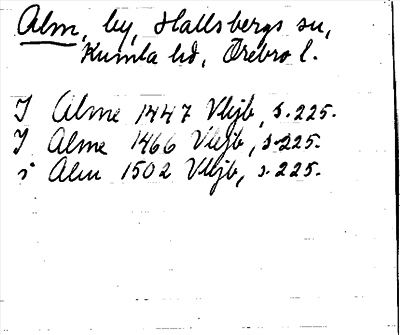 Alm, by, Hallsbergs sn,
Kumla hd, Örebro l.
I Alme 1447 Vlljb, s. 225.
I Alme 1466 Vlljb, s. 225.
i Alm 1502 Vlljb, s. 225.